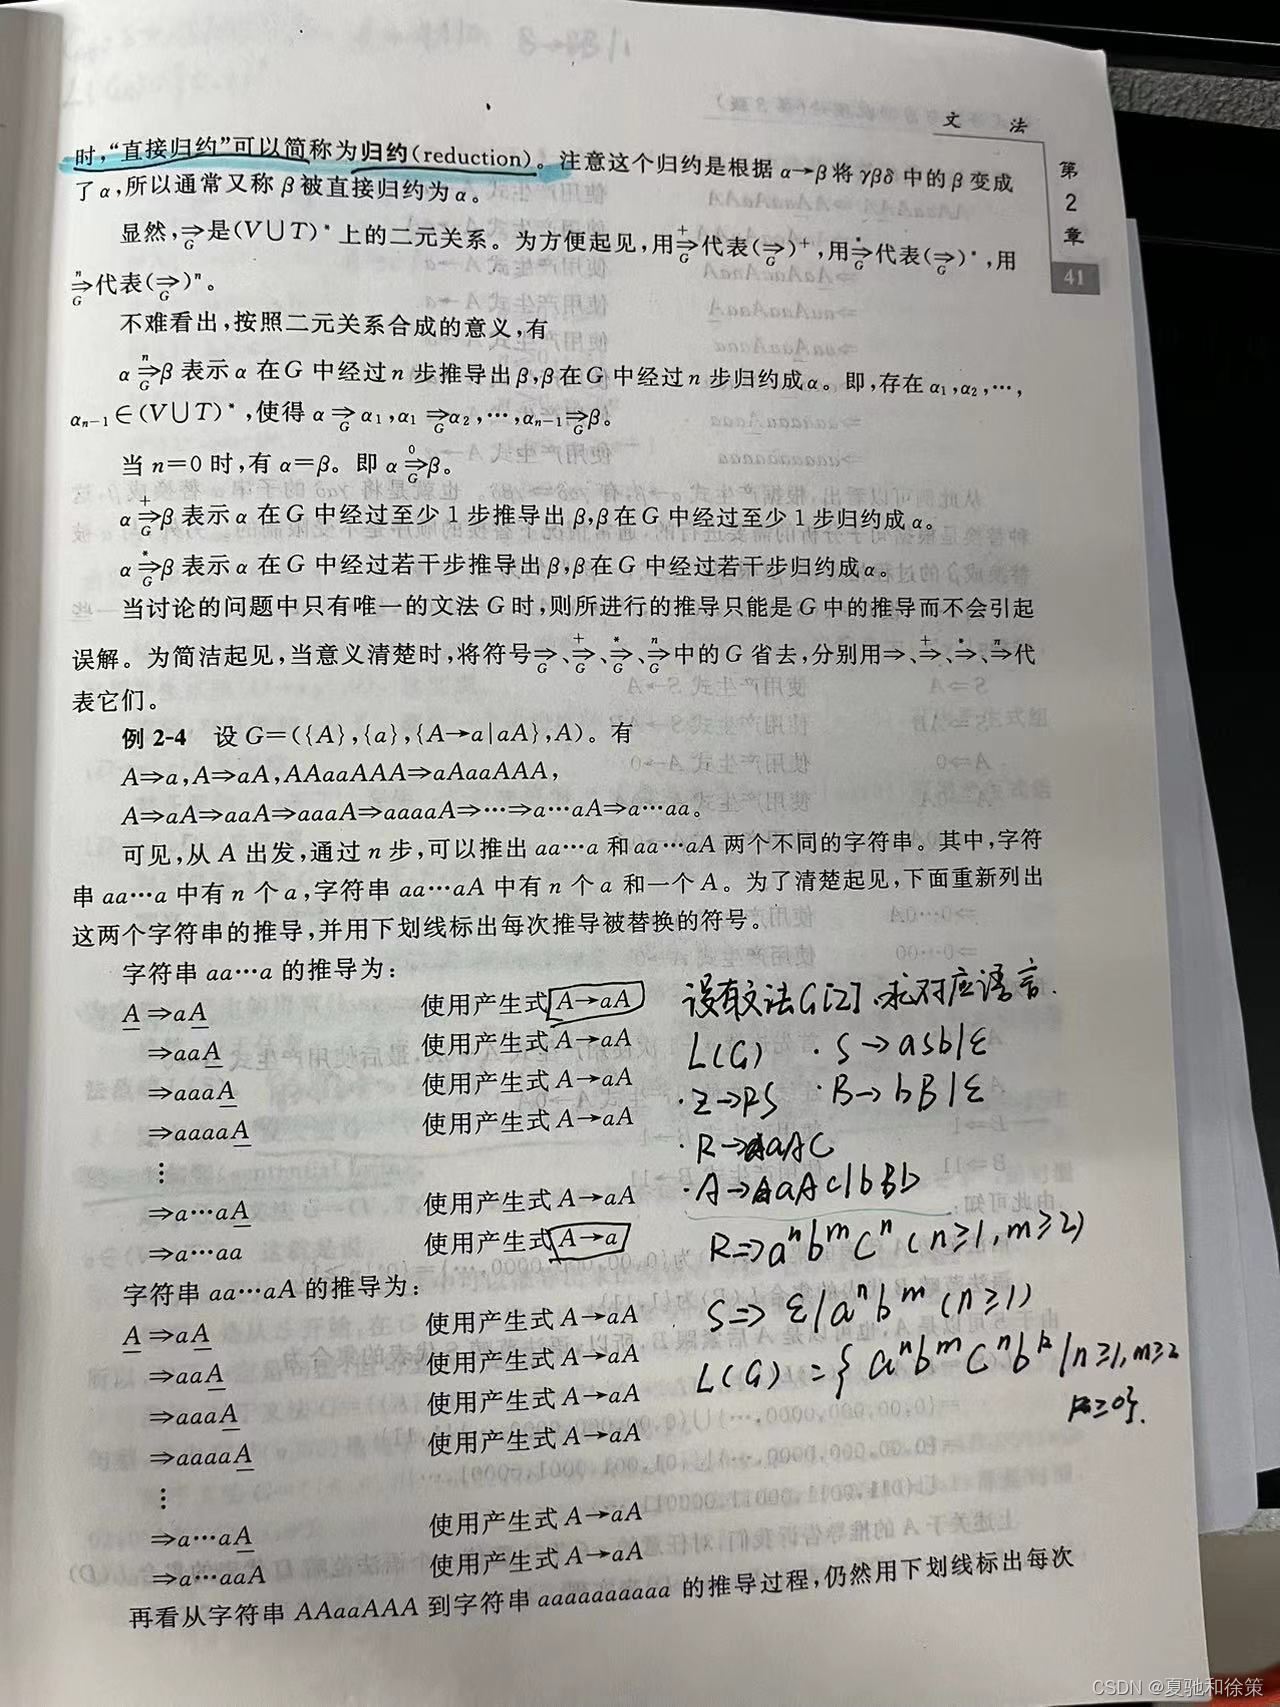 文 法
第
2
章
41
时,“直接归约”可以简称为归约(reduction)。注意这个归约是根据 α→β将 γβδ 中的 β 变成
了 α,所以通常又称 β 被直接归约为 α。
显然,⇒G是(V∪T)*上的二元关系。为方便起见,用+⇒G代表(⇒G)+,用*⇒G代表(⇒G)*,用
n⇒G代表(⇒G)n。
不难看出,按照二元关系合成的意义,有
α n⇒G β 表示 α 在 G 中经过 n 步推导出 β,β 在 G 中经过 n 步归约成 α。即,存在 α1,α2,…,
αn-1∈(V∪T)*,使得 α⇒G α1,α1⇒G α2,…,αn-1⇒G β。
当 n=0 时,有 α=β。即 α 0⇒G β。
α +⇒G β 表示 α 在 G 中经过至少 1 步推导出 β,β 在 G 中经过至少 1 步归约成 α。
α *⇒G β 表示 α 在 G 中经过若干步推导出 β,β 在 G 中经过若干步归约成 α。
当讨论的问题中只有唯一的文法 G 时,则所进行的推导只能是 G 中的推导而不会引起
误解。为简洁起见,当意义清楚时,将符号⇒G、+⇒G、*⇒G、n⇒G中的 G 省去,分别用⇒、+⇒、*⇒、n⇒代
表它们。
例 2-4 设 G=({A},{a},{A→a|aA},A)。有
A⇒a,A⇒aA,AAaaAAA⇒aAaaAAA,
A⇒aA⇒aaA⇒aaaA⇒aaaaA⇒…⇒a…aA⇒a…aa。
可见,从 A 出发,通过 n 步,可以推出 aa…a 和 aa…aA 两个不同的字符串。其中,字符
串 aa…a 中有 n 个 a,字符串 aa…aA 中有 n 个 a 和一个 A。为了清楚起见,下面重新列出
这两个字符串的推导,并用下划线标出每次推导被替换的符号。
字符串 aa…a 的推导为:
A⇒aA 使用产生式 A→aA
⇒aaA 使用产生式 A→aA
⇒aaaA 使用产生式 A→aA
⇒aaaaA 使用产生式 A→aA
⋮
⇒a…aA 使用产生式 A→aA
⇒a…aa 使用产生式 A→a
字符串 aa…aA 的推导为:
A⇒aA 使用产生式 A→aA
⇒aaA 使用产生式 A→aA
⇒aaaA 使用产生式 A→aA
⇒aaaaA 使用产生式 A→aA
⋮
⇒a…aA 使用产生式 A→aA
⇒a…aaA 使用产生式 A→aA
再看从字符串 AAaaAAA 到字符串 aaaaaaaaaa 的推导过程,仍然用下划线标出每次
设有文法G[Z].求对应语言.
L(G) · S→aSb|ε
· Z→RS · B→bB|ε
· R→aAC
· A→aAc|bBb
R⇒aⁿbᵐcⁿ(n≥1,m≥2)
S⇒ε|aⁿbᵐ(n≥1)
L(G)={aⁿbᵐcⁿbᵏ|n≥1,m≥2
k≥0}.
CSDN @夏驰和徐策